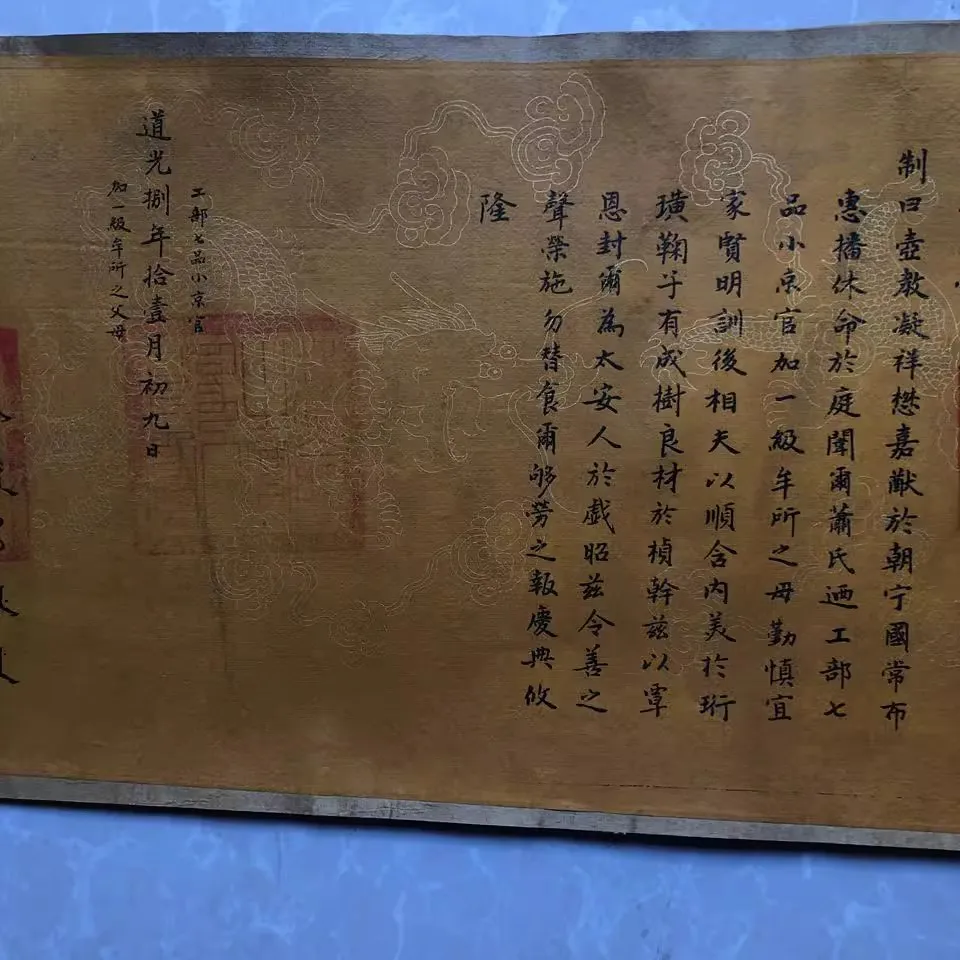 制曰壺教凝祥懋嘉猷於朝宁國常布
惠播休命於庭闈爾蕭氏迺工部七
品小京官加一級牟所之母勤慎宜
家賢明訓後相夫以順含內美於珩
璜鞠子有成樹良材於楨幹茲以覃
恩封爾為太安人於戲昭茲令善之
聲榮施勿替食爾够勞之報慶典攸
隆
道光捌年拾壹月初九日
工部七品小京官
加一級牟所之父母